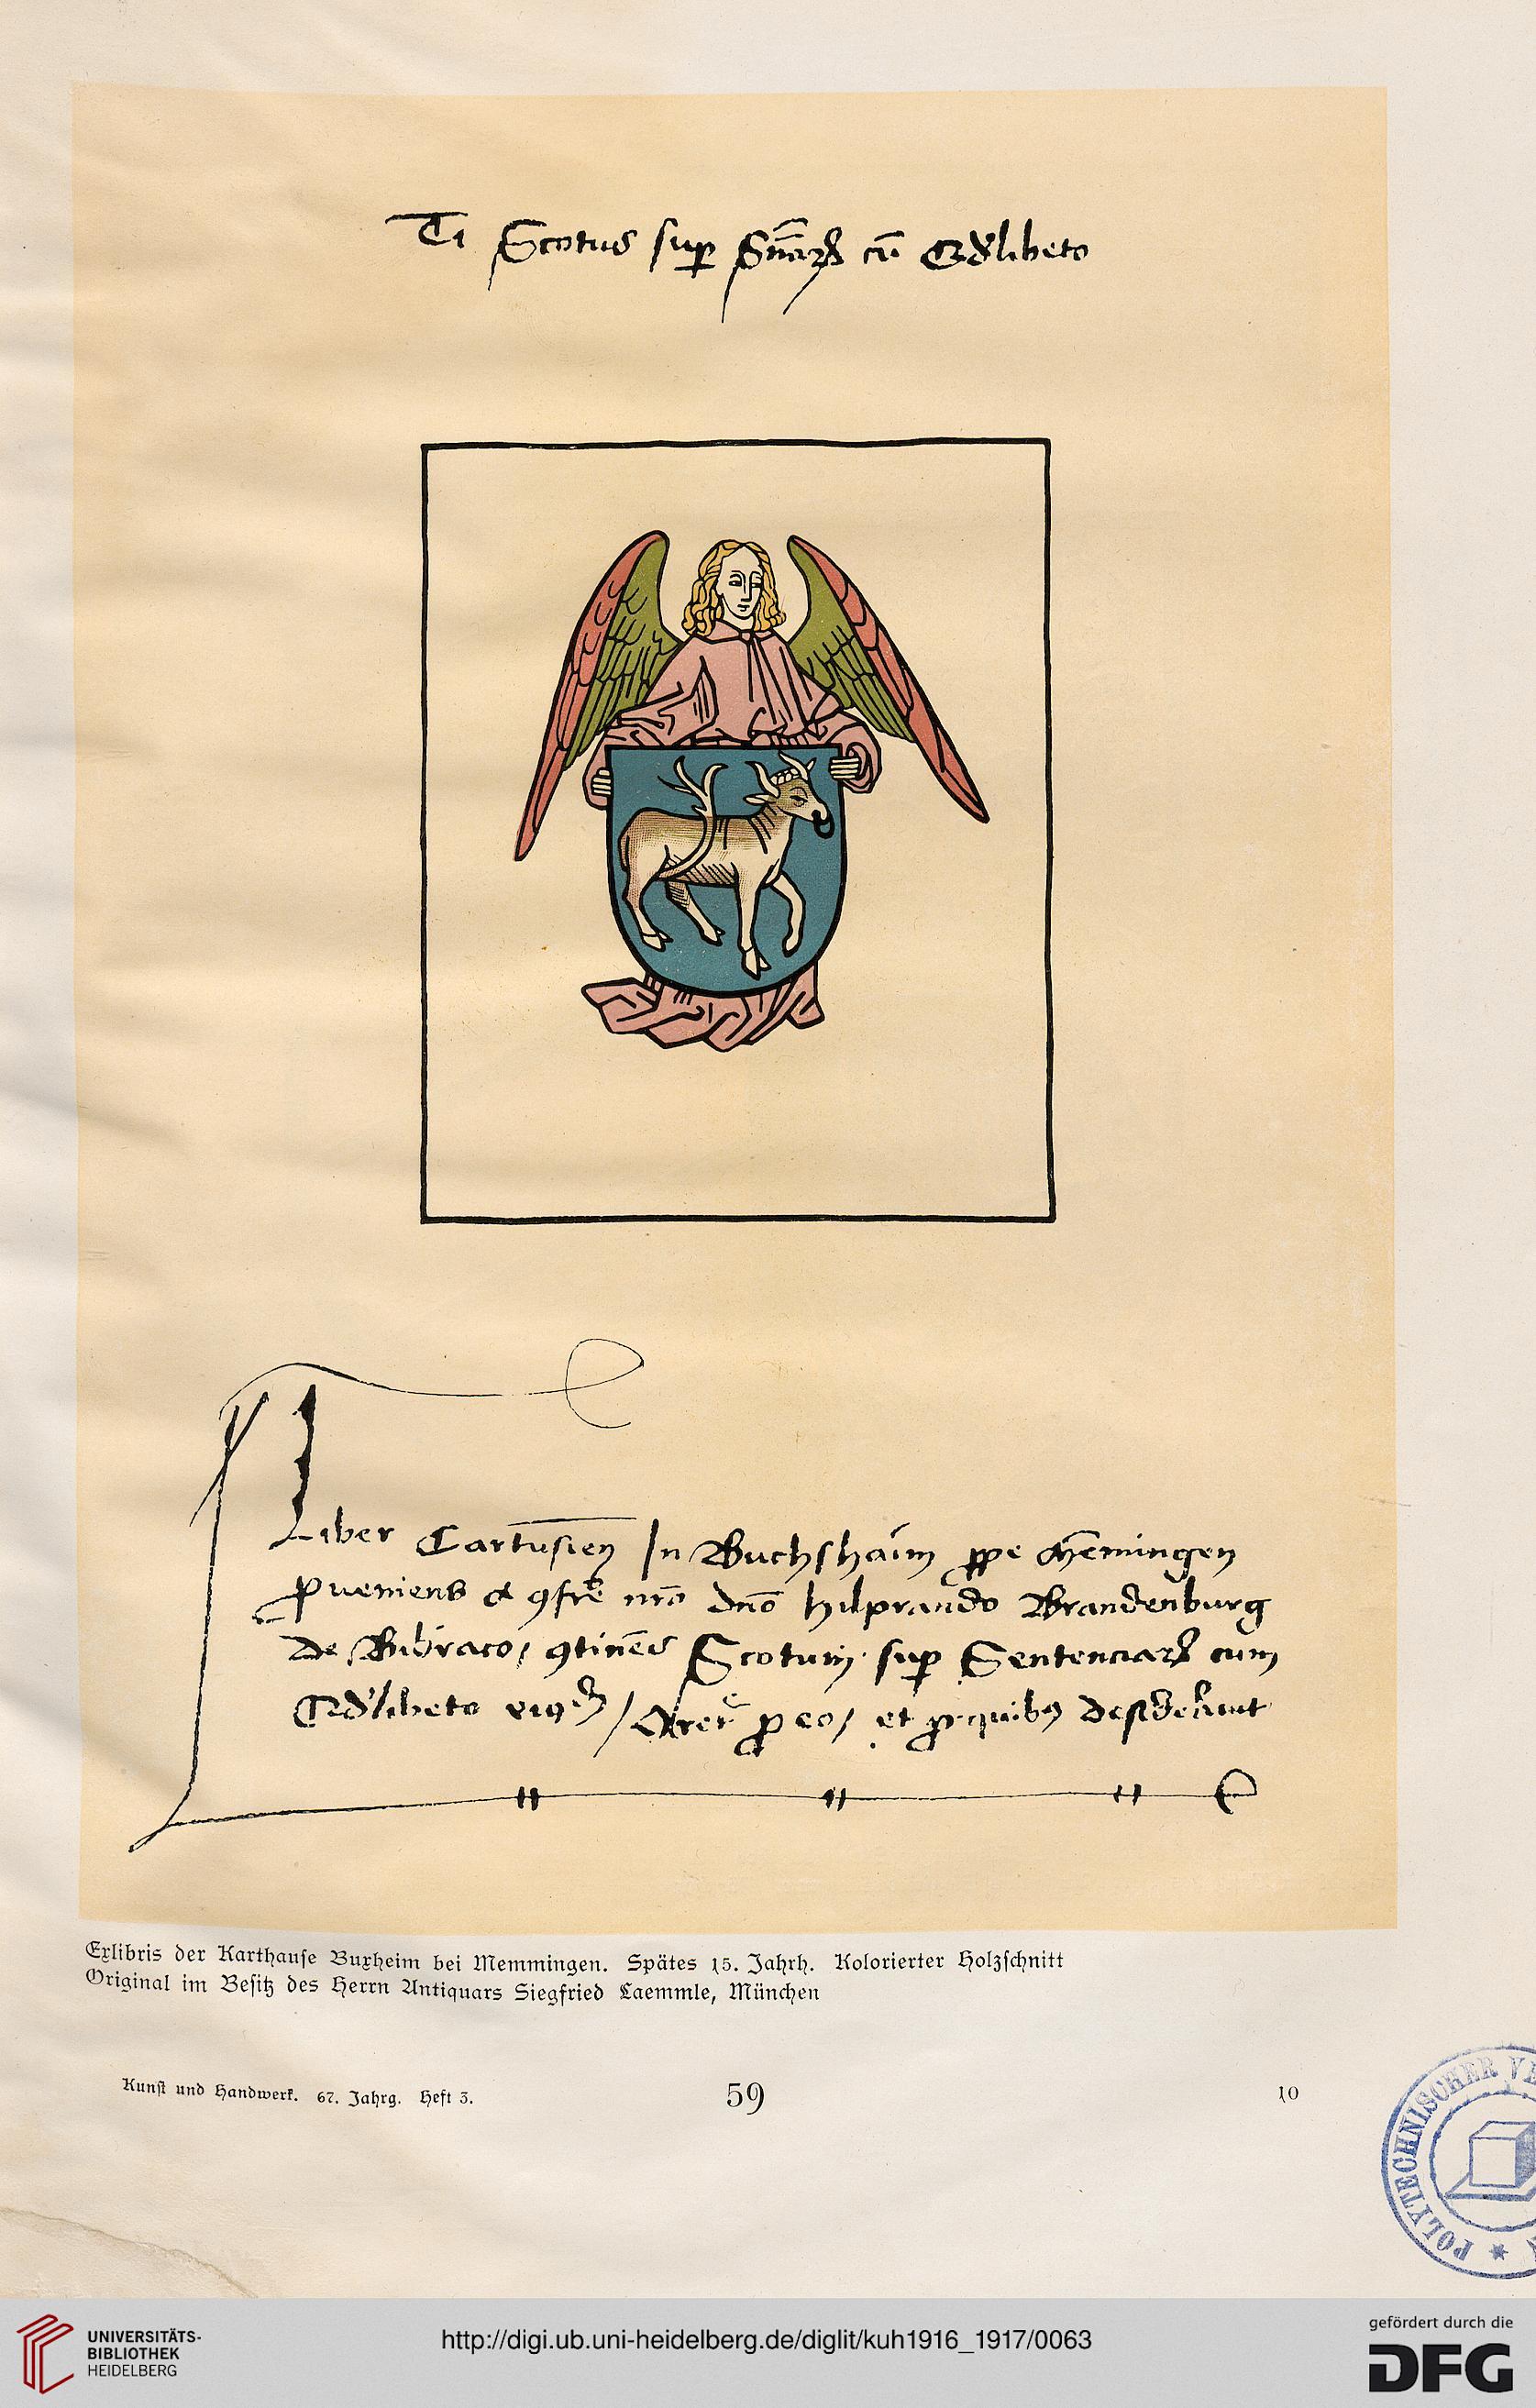 Ti Scotus sup Sn̄arꝝ cū Qd'libeto
Liber Cartusien̄ In Buchshaim ꝓpe Memingen
ꝓueniens a ꝯfrē nrō dnō hilprando Brandenburg
de Bibraco, ꝯtinēs Scotum sup Sentenciarꝝ cum
Qd'libeto eiꝰdē / Oret̄ ꝓ eo, et ꝓ quibꝰ desiderauit
Exlibris der Karthause Buxheim bei Memmingen. Spätes 15. Jahrh. Kolorierter Holzschnitt
Original im Besitz des Herrn Antiquars Siegfried Laemmle, München
Kunst und Handwerk. 67. Jahrg. Heft 3.
59
10
POLYTECHNISCHER
UNIVERSITÄTS-
BIBLIOTHEK
HEIDELBERG
http://digi.ub.uni-heidelberg.de/diglit/kuh1916_1917/0063
gefördert durch die
DFG